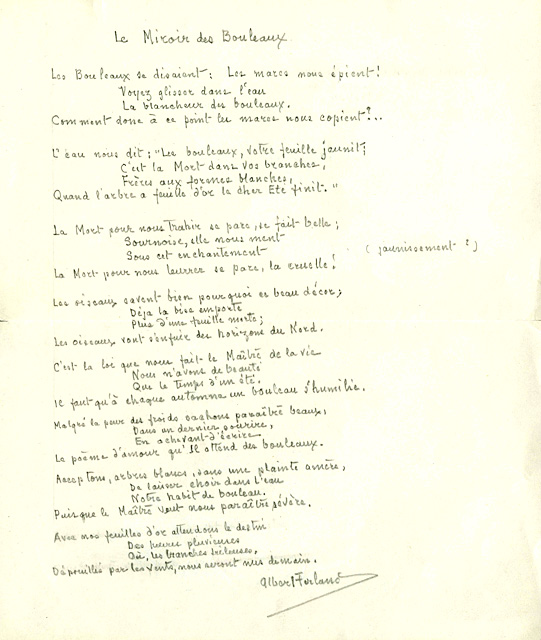 Le Miroir des Bouleaux
Les Bouleaux se disaient: Les mares nous épient!
Voyez glisser dans l'eau
La blancheur des bouleaux.
Comment donc à ce point les mares nous copient?..
L'eau nous dit: "Les bouleaux, votre feuille jaunit;
C'est la Mort dans vos branches,
Frères aux formes blanches,
Quand l'arbre a feuille d'or le cher Eté finit."
La Mort pour nous trahir se pare, se fait belle;
Sournoise, elle nous ment
Sous cet enchantement (jaunissement?)
La Mort pour nous leurrer se pare, la cruelle!
Les oiseaux savent bien pourquoi ce beau décor;
Déja la bise emporte
Plus d'une feuille morte;
Les oiseaux vont s'enfuir des horizons du Nord.
C'est la loi que nous fait le Maître de la vie
Nous n'avons de beauté
Que le temps d'un été.
Il faut qu'à chaque automne un bouleau s'humilie.
Malgré la peur des froids sachons paraître beaux,
Dans un dernier sourire,
En achevant d'écrire
Le poème d'amour qu'Il attend des bouleaux.
Acceptons, arbres blancs, sans une plainte amère,
De laisser choir dans l'eau
Notre habit de bouleau.
Puisque le Maître veut nous paraître sévère.
Avec nos feuilles d'or attendons le destin
Des heures pluvieuses
Où, les branches frileuses,
Dépouillés par les vents, nous serons nus demain.
Albert Ferland